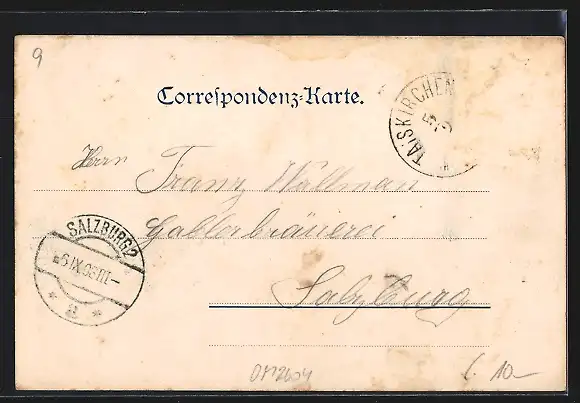 9
Correspondenz-Karte.
TAISKIRCHEN
Herrn Franz Wallman
Gablerbräuerei
Salzburg
SALZBURG 2
6.IX.06.III-
* a *
10.-